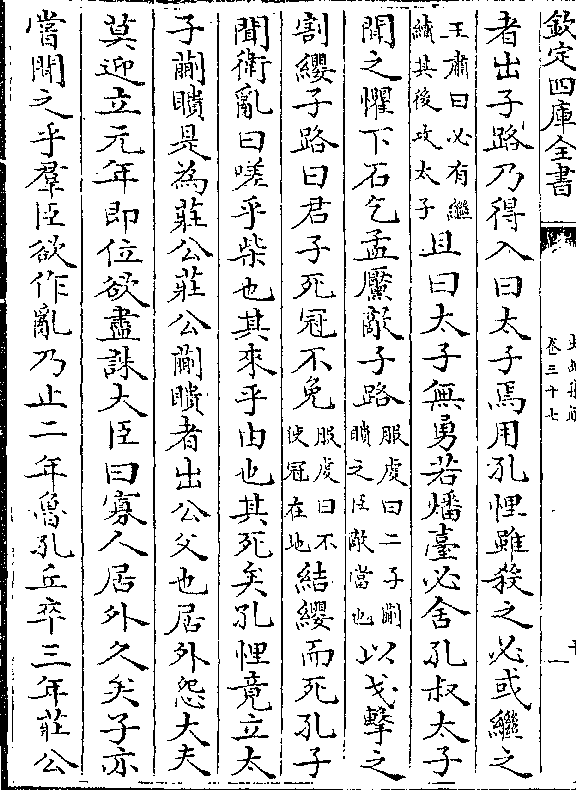 欽定四庫全書
卷三十七
者出子路乃得入曰太子焉用孔悝雖殺之必或繼之
王肅曰必有繼
續其後攻太子
且曰太子無勇若燔臺必舍孔叔太子
聞之懼下石乞孟黶敵子路
服虔曰二子蒯
聵之臣敵當也
以戈擊之
割纓子路曰君子死冠不免
服虔曰不
使冠在地
結纓而死孔子
聞衛亂曰嗟乎柴也其來乎由也其死矣孔悝竟立太
子蒯聵是為莊公莊公蒯聵者出公父也居外怨大夫
莫迎立元年即位欲盡誅大臣曰寡人居外久矣子亦
嘗聞之乎羣臣欲作亂乃止二年魯孔丘卒三年莊公